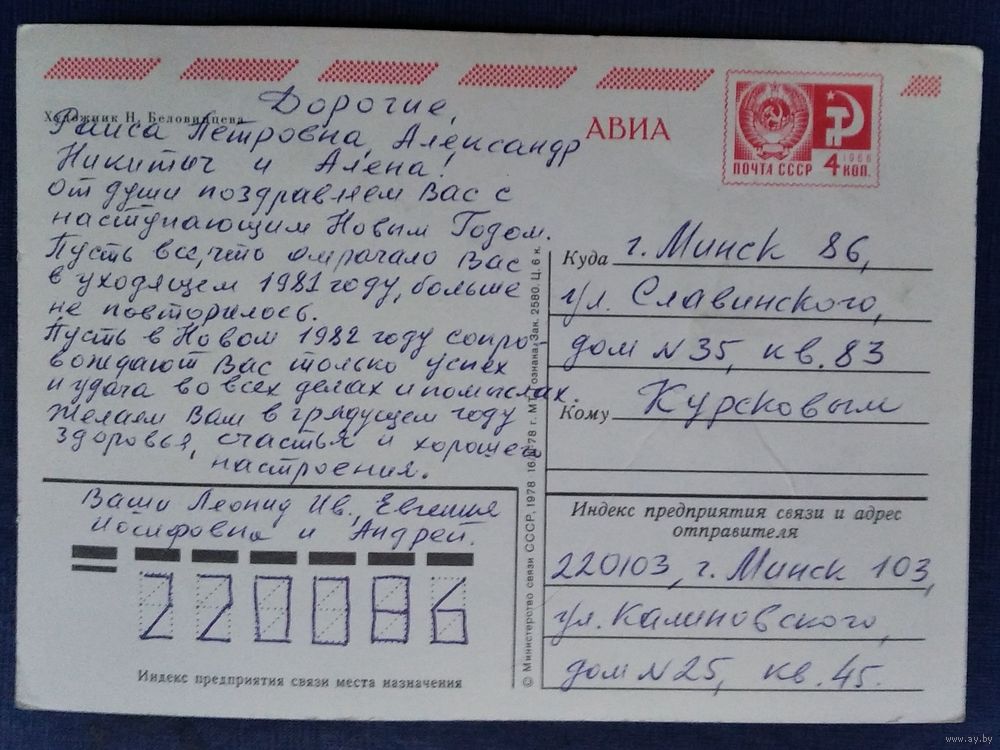 Художник Н. Беловинцева
Дорогие,
Раиса Петровна, Александр
Никитич и Алена!
От души поздравляем Вас с
наступающим Новым Годом.
Пусть все, что омрачало Вас
в уходящем 1981 году, больше
не повторилось.
Пусть в Новом 1982 году сопро-
вождают Вас только успех
и удача во всех делах и помыслах.
Желаем Вам в грядущем году
здоровья, счастья и хорошего
настроения.
Ваши Леонид Ив., Евгения
Иосифовна и Андрей.
220086
Индекс предприятия связи места назначения
АВИА
ПОЧТА СССР
1966
4 КОП.
Куда г. Минск 86,
ул. Славинского,
дом N 35, кв. 83
Кому Курсковым
Индекс предприятия связи и адрес
отправителя
220103, г. Минск 103,
ул. Калиновского,
дом N 25, кв. 45.
© Министерство связи СССР, 1978 г. МТ Гознака. Зак. 2580. Ц. 6 к.
www.ay.by